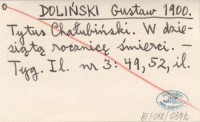 DOLIŃSKI Gustaw 1900.
Tytus Chałubiński. W dzie-
siątą rocznicę śmierci. –
Tyg. Il. nr 3: 49, 52, il.